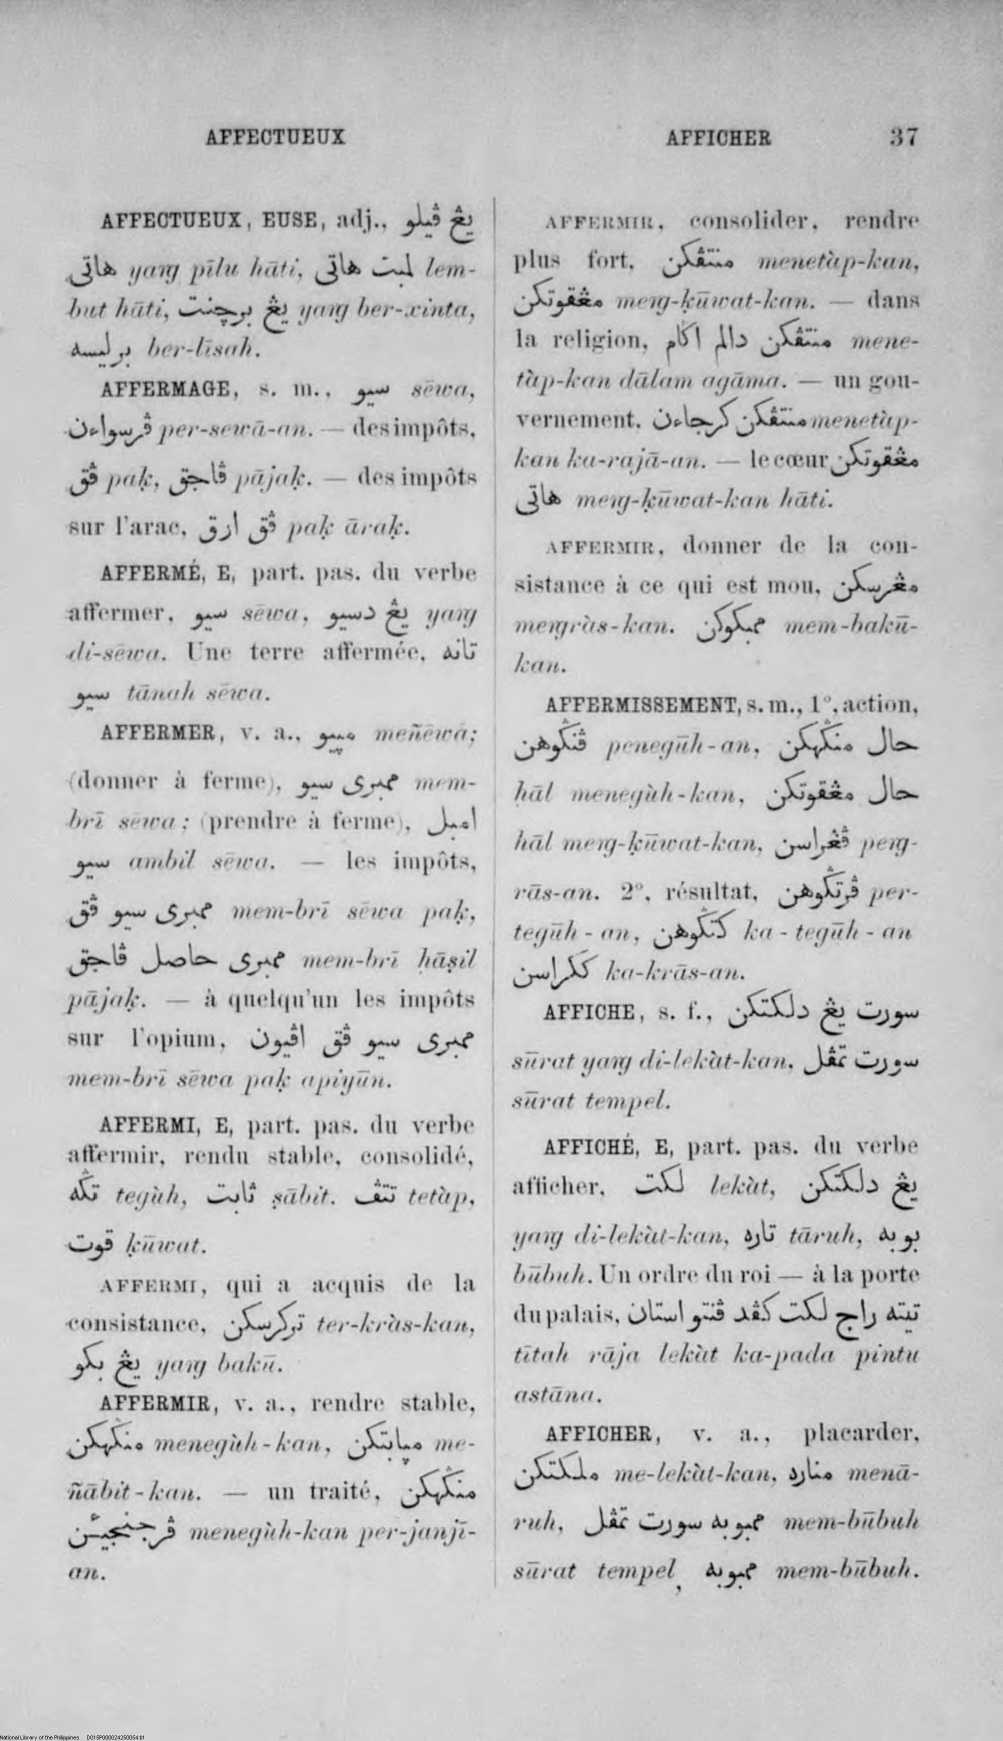 AFFECTUEUX
AFFICHER 37
AFFECTUEUX, EUSE, adj., يڠ ڤيلو
هاتي yaṅg pīlu hāti, لمبت هاتي lem-
but hāti, يڠ برچنت yaṅg ber-xinta,
برليسه ber-līsah.
AFFERMAGE, s. m., سيو sēwa,
ڤرسواءن per-sewā-an. — des impôts,
ڤق paḳ, ڤاجق pājaḳ. — des impôts
sur l'arac, ڤق ارق paḳ āraḳ.
AFFERMÉ, E, part. pas. du verbe
affermer, سيو sēwa, يڠ دسيو yaṅg
di-sēwa. Une terre affermée, تانه
سيو tānah sēwa.
AFFERMER, v. a., meñēwa;
(donner à ferme), ممبري سيو mem-
brī sēwa; (prendre à ferme), امبل
سيو ambil sēwa. — les impôts,
ممبري سيو ڤق mem-brī sēwa paḳ,
ممبري حاصل ڤاجق mem-brī ḥāṣil
pājaḳ. — à quelqu'un les impôts
sur l'opium, ممبري سيو ڤق اڤيون
mem-brī sēwa paḳ apiyūn.
AFFERMI, E, part. pas. du verbe
affermir, rendu stable, consolidé,
تݢه tegùh, ثابت ṣābit. تتڤ tetàp,
قوت ḳūwat.
AFFERMI, qui a acquis de la
consistance, تركرسكن ter-kràs-kan,
يڠ بكو yaṅg bakū.
AFFERMIR, v. a., rendre stable,
منݢهكن menegùh-kan, me-
ñābit-kan. — un traité, منݢهكن
menegùh-kan per-janjī-
an.
AFFERMIR, consolider, rendre
plus fort, منتڤكن menetàp-kan,
مڠقوتكن meṅg-ḳūwat-kan. — dans
la religion, منتڤكن دالم اݢام mene-
tàp-kan dālam agāma. — un gou-
vernement, منتڤكن كرجاءن menetàp-
kan ka-rajā-an. — le cœur مڠقوتكن
هاتي meṅg-ḳūwat-kan hāti.
AFFERMIR, donner de la con-
sistance à ce qui est mou, مڠرسكن
meṅgràs-kan. ممبكوكن mem-bakū-
kan.
AFFERMISSEMENT, s. m., 1°, action,
ڤنݢوهن penegūh-an, حال منݢهكن
ḥāl menegùh-kan, حال مڠقوتكن
ḥāl meṅg-ḳūwat-kan, ڤڠراسن peṅg-
rās-an. 2°, résultat, ڤرتݢوهن per-
tegūh-an, كتݢوهن ka-tegūh-an
ككراسن ka-krās-an.
AFFICHE, s. f., سورت يڠ دلكتكن
sūrat yaṅg di-lekàt-kan, سورت تمڤل
sūrat tempel.
AFFICHÉ, E, part. pas. du verbe
afficher, لكت lekàt, يڠ دلكتكن
yaṅg di-lekàt-kan, تاره tāruh, بوبه
būbuh. Un ordre du roi — à la porte
du palais, تيته راج لكت كڤد ڤنتو استان
tītah rāja lekàt ka-pada pintu
astāna.
AFFICHER, v. a., placarder,
ملكتكن me-lekàt-kan, مناره menā-
ruh, ممبوبه سورت تمڤل mem-būbuh
sūrat tempel, ممبوبه mem-būbuh.
National Library of the Philippines